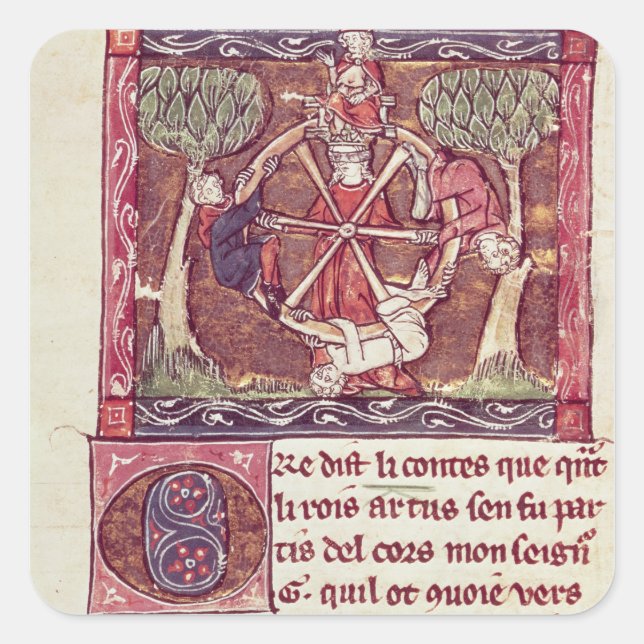 Re dist li contes que qnt
li rois artus sen fu par
tis del cors mon seign
G. quil ot quoie vers